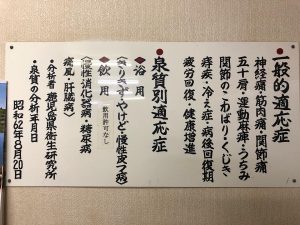 一般的適応症
神経痛・筋肉痛・関節痛
五十肩・運動麻痺・うちみ
関節のこわばり・くじき
痔疾・冷え症・病後回復期
疲労回復・健康増進
泉質別適応症
浴用
(きりきず・やけど・慢性皮フ病)
飲用 飲用許可なし
(慢性消化器病・糖尿病
痛風・肝臓病)
・分析者 鹿児島県衛生研究所
・泉質の分析年月日
昭和62年8月20日